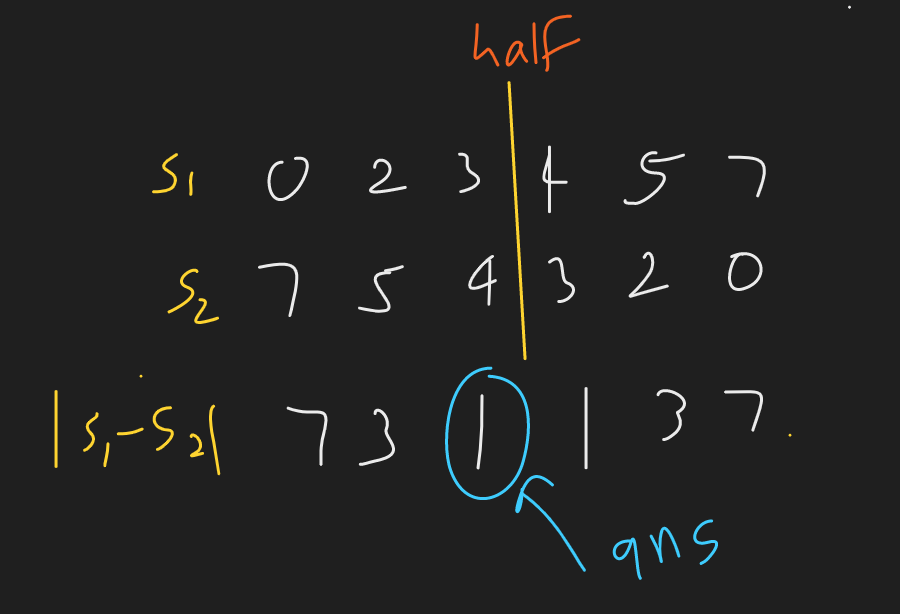 half
S1 0 2 3 4 5 7
S2 7 5 4 3 2 0
|S1-S2| 7 3 1 1 3 7
ans